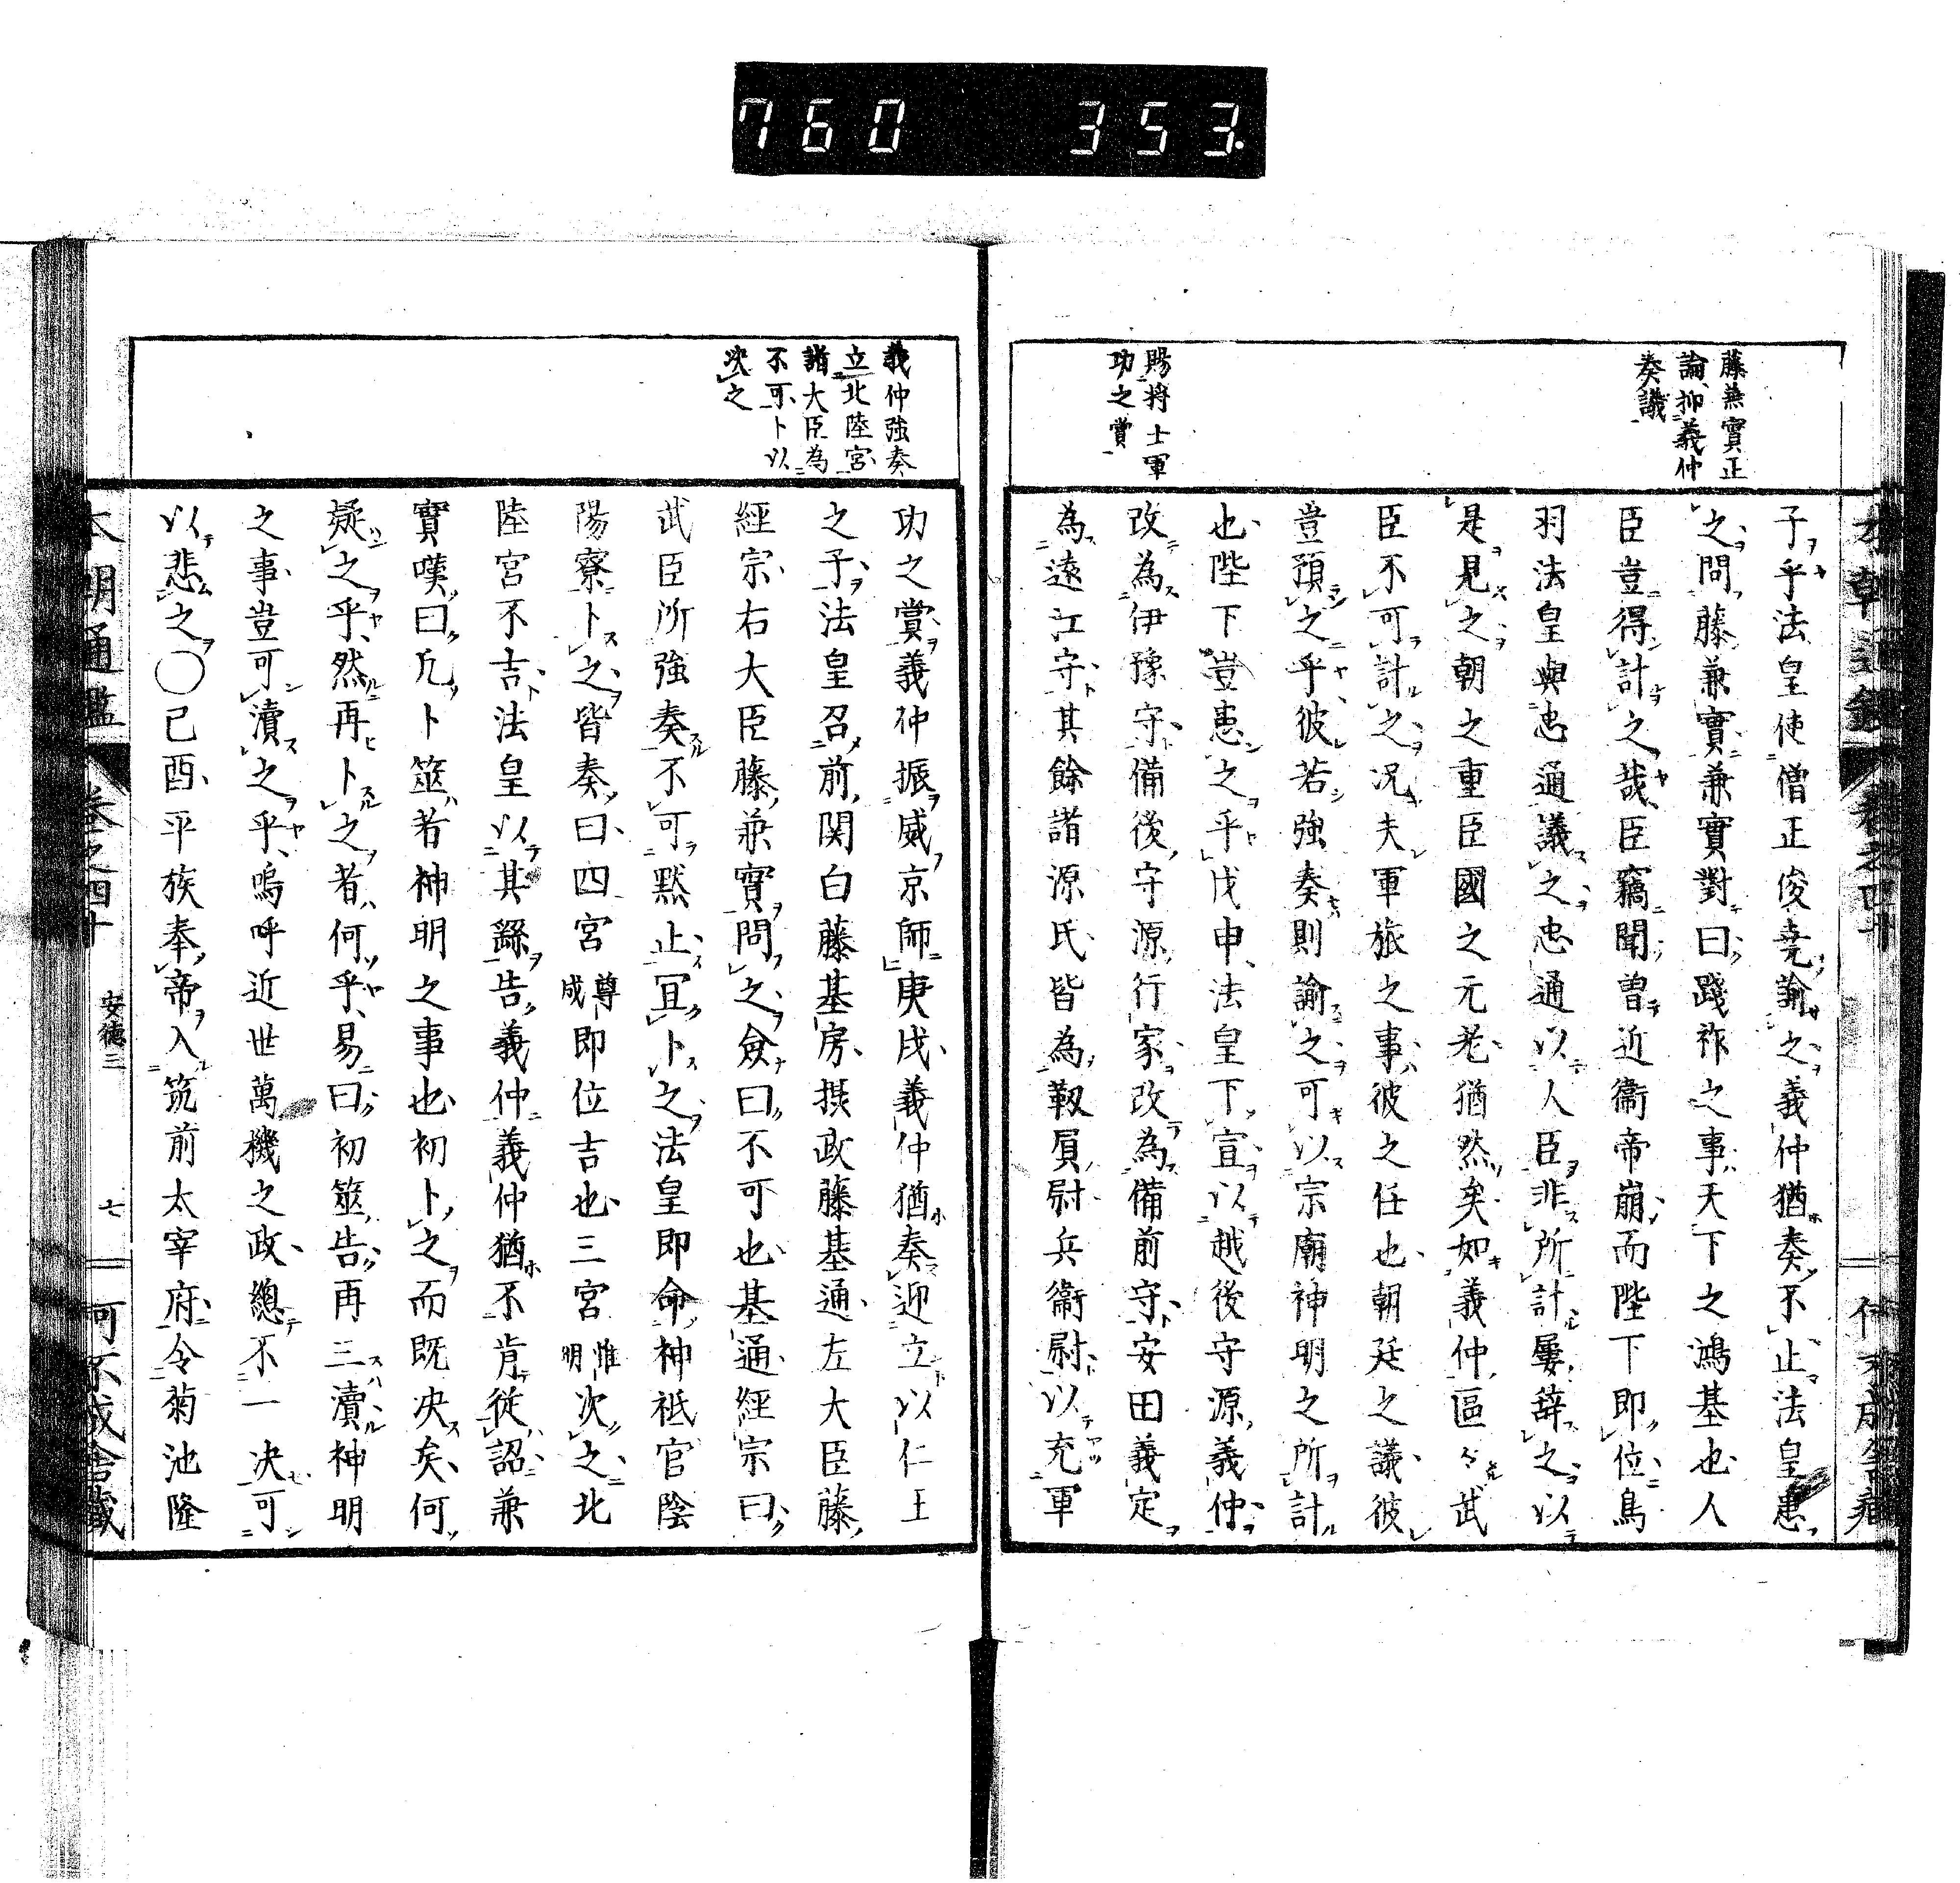 760 353.
藤兼實正
論抑義仲
奏議
賜將士軍
功之賞
子乎法皇使僧正俊堯諭之義仲猶奏不止法皇患
之問藤兼實兼實對曰踐祚之事天下之鴻基也人
臣豈得計之哉臣竊聞曽近衞帝崩而陛下即位鳥
羽法皇與忠通議之忠通以人臣非所計屢辞之以
是見之朝之重臣國之元老猶然矣如義仲區々武
臣不可計之况夫軍旅之事彼之任也朝廷之議彼
豈預之乎彼若強奏則諭之可以宗廟神明之所計
也陛下豈患之乎戊申法皇下宣以越後守源義仲
改為伊豫守備後守源行家改為備前守安田義定
為遠江守其餘諸源氏皆為靱屓尉兵衞尉以充軍
義仲強奏
立北陸宮
諸大臣為
不可卜以
决之
功之賞義仲振威京師庚戌義仲猶奏迎立以仁王
之子法皇召前関白藤基房摂政藤基通左大臣藤
經宗右大臣藤兼實問之僉曰不可也基通經宗曰
武臣所強奏不可黙止冝卜之法皇即命神祗官陰
陽寮卜之皆奏曰四宮尊成即位吉也三宮惟明次之北
陸宮不吉法皇以其繇告義仲義仲猶不肯從詔兼
實嘆曰凢卜筮者神明之事也初卜之而既决矣何
疑之乎然再卜之者何乎易曰初筮告再三瀆神明
之事豈可瀆之乎嗚呼近世萬機之政總不一决可
以悲之〇己酉平族奉帝入筑前太宰府令菊池隆
本朝通鑑 卷之四十 安徳三 七 可不成舎藏